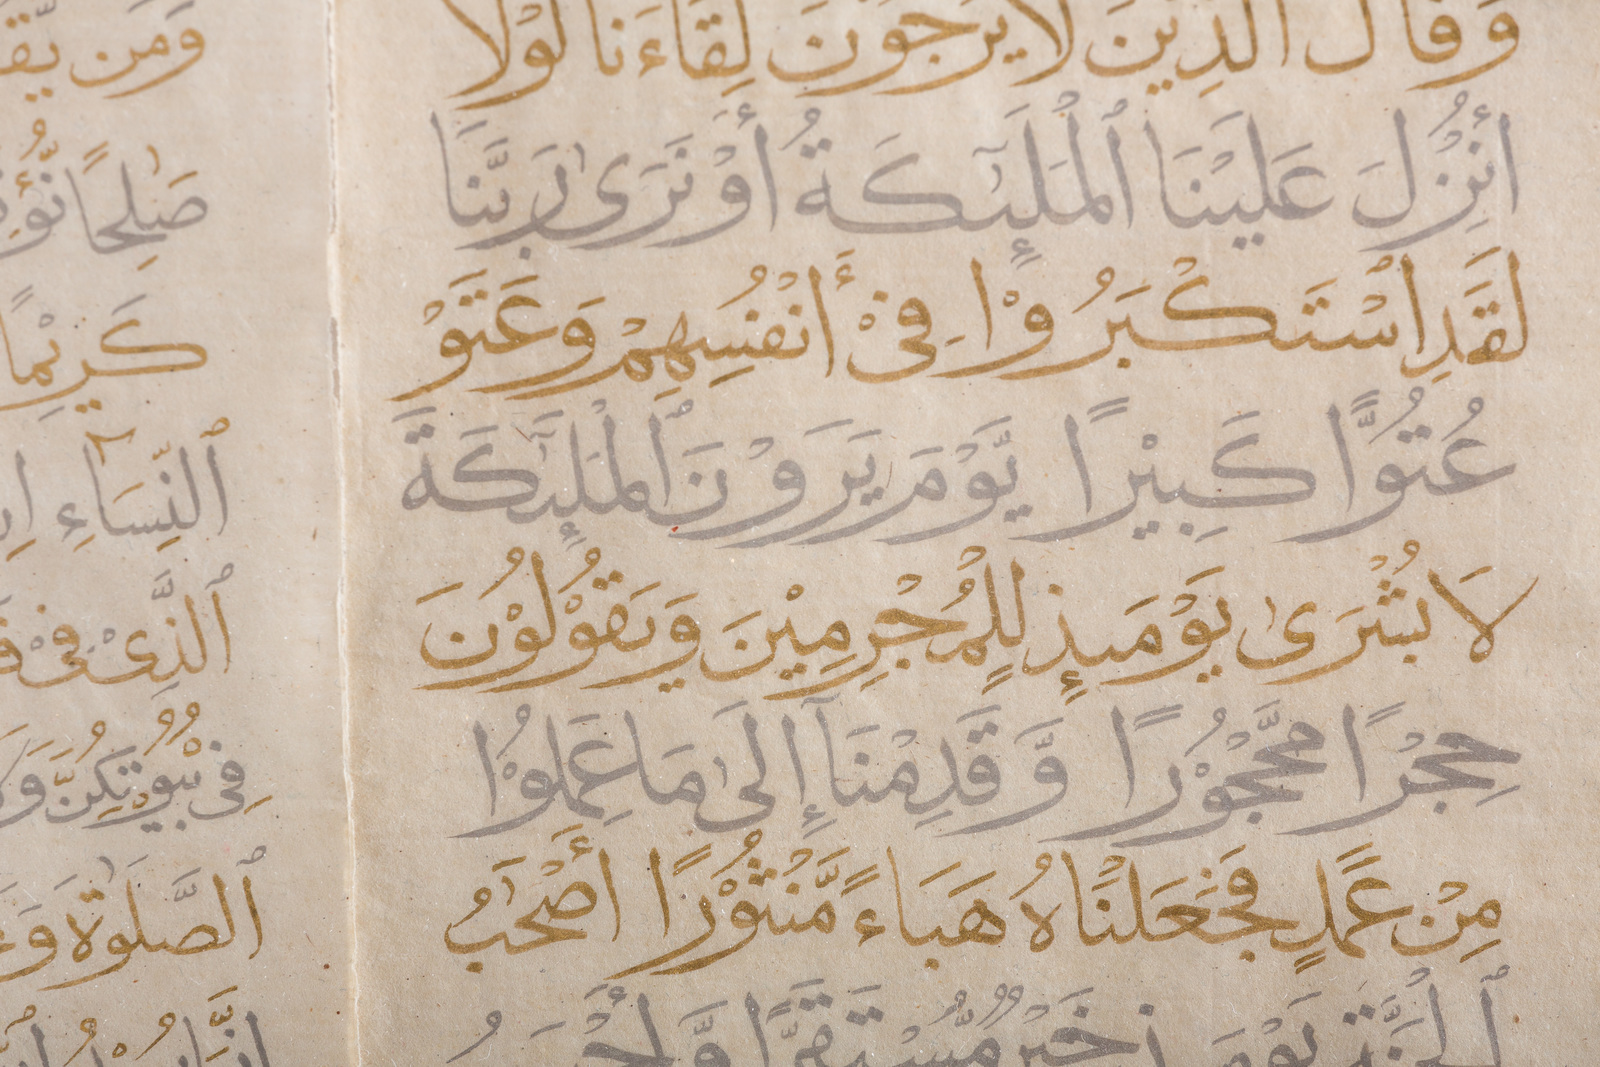 وَقَالَ الَّذِيْنَ لَا يَرْجُوْنَ لِقَاءَنَا لَوْلَا
أُنْزِلَ عَلَيْنَا ٱلْمَلَٰٓئِكَةُ أَوْ نَرَىٰ رَبَّنَا
لَقَدِ اسْتَكْبَرُوْا فِىْٓ أَنْفُسِهِمْ وَعَتَوْ
عُتُوًّا كَبِيْرًا يَّوْمَ يَرَوْنَ ٱلْمَلَٰٓئِكَةَ
لَا بُشْرَىٰ يَوْمَئِذٍ لِلْمُجْرِمِيْنَ وَيَقُوْلُوْنَ
حِجْرًا مَّحْجُوْرًا وَّقَدِمْنَآ إِلَىٰ مَا عَمِلُوْا
مِنْ عَمَلٍ فَجَعَلْنَاهُ هَبَاءً مَّنْثُوْرًا أَصْحَٰبُ
ٱلْجَنَّةِ يَوْمَ خَيْرٌ مُّسْتَقَرًّا وَّأَحْسَنُ
وَمَن يَّقْ
صَٰلِحًا نُّؤْ
كَرِيْمًا
ٱلنِّسَاءِ
ٱلَّذِىْ فِىْ
فِىْ بُيُوْتِكُنَّ وَ
ٱلصَّلَوٰةَ وَ